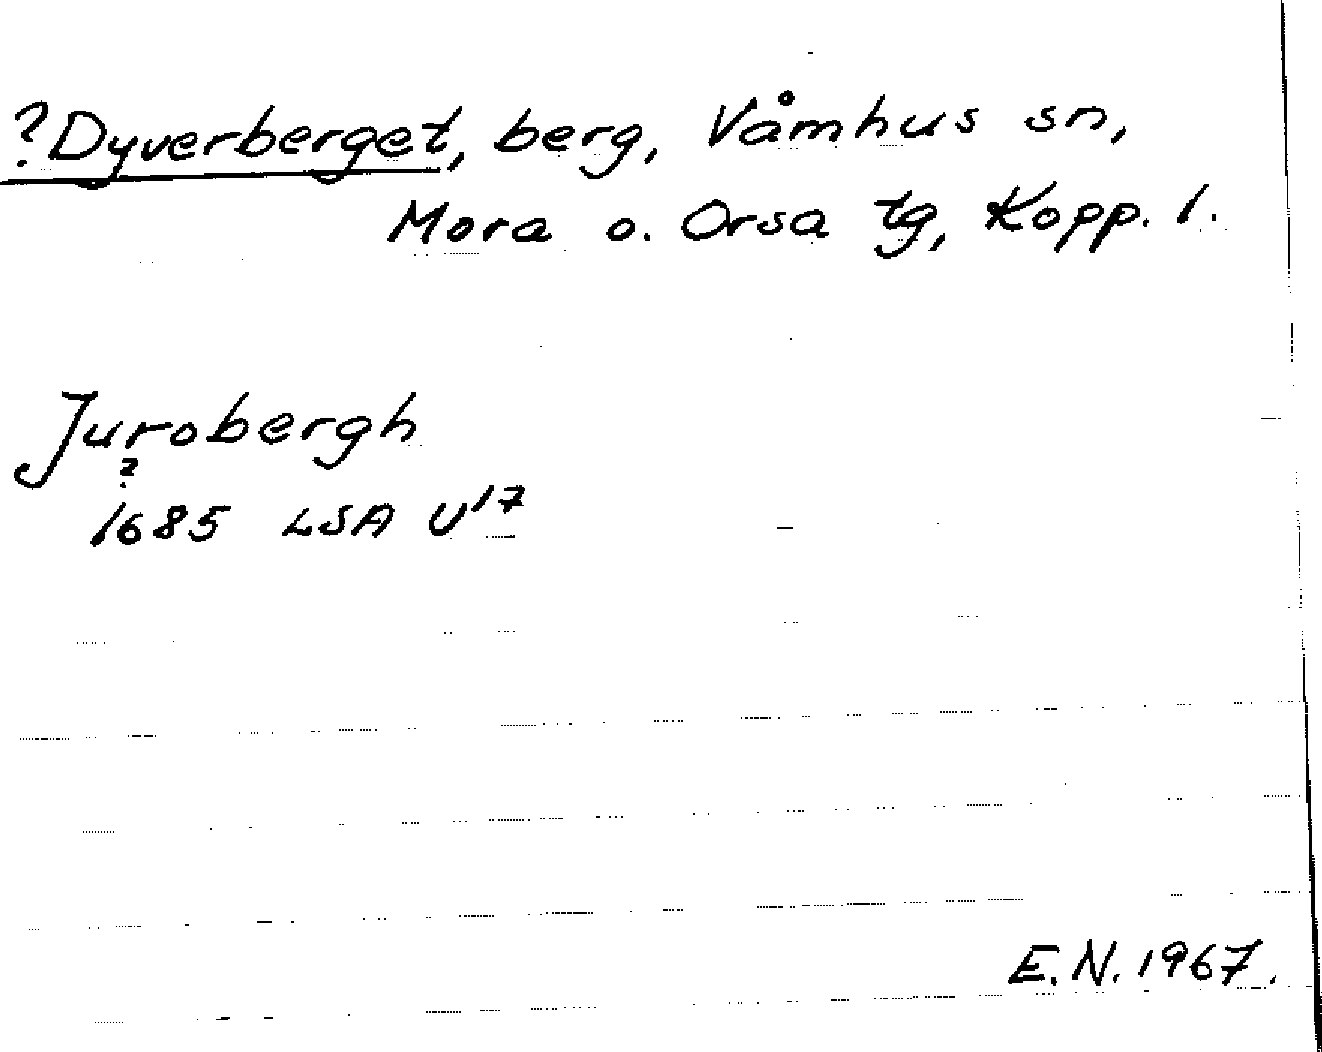 ?Dyverberget, berg, Våmhus sn,
Mora o. Orsa tg, Kopp. l.
Jurobergh
?
1685 LSA U17
E.N. 1967.